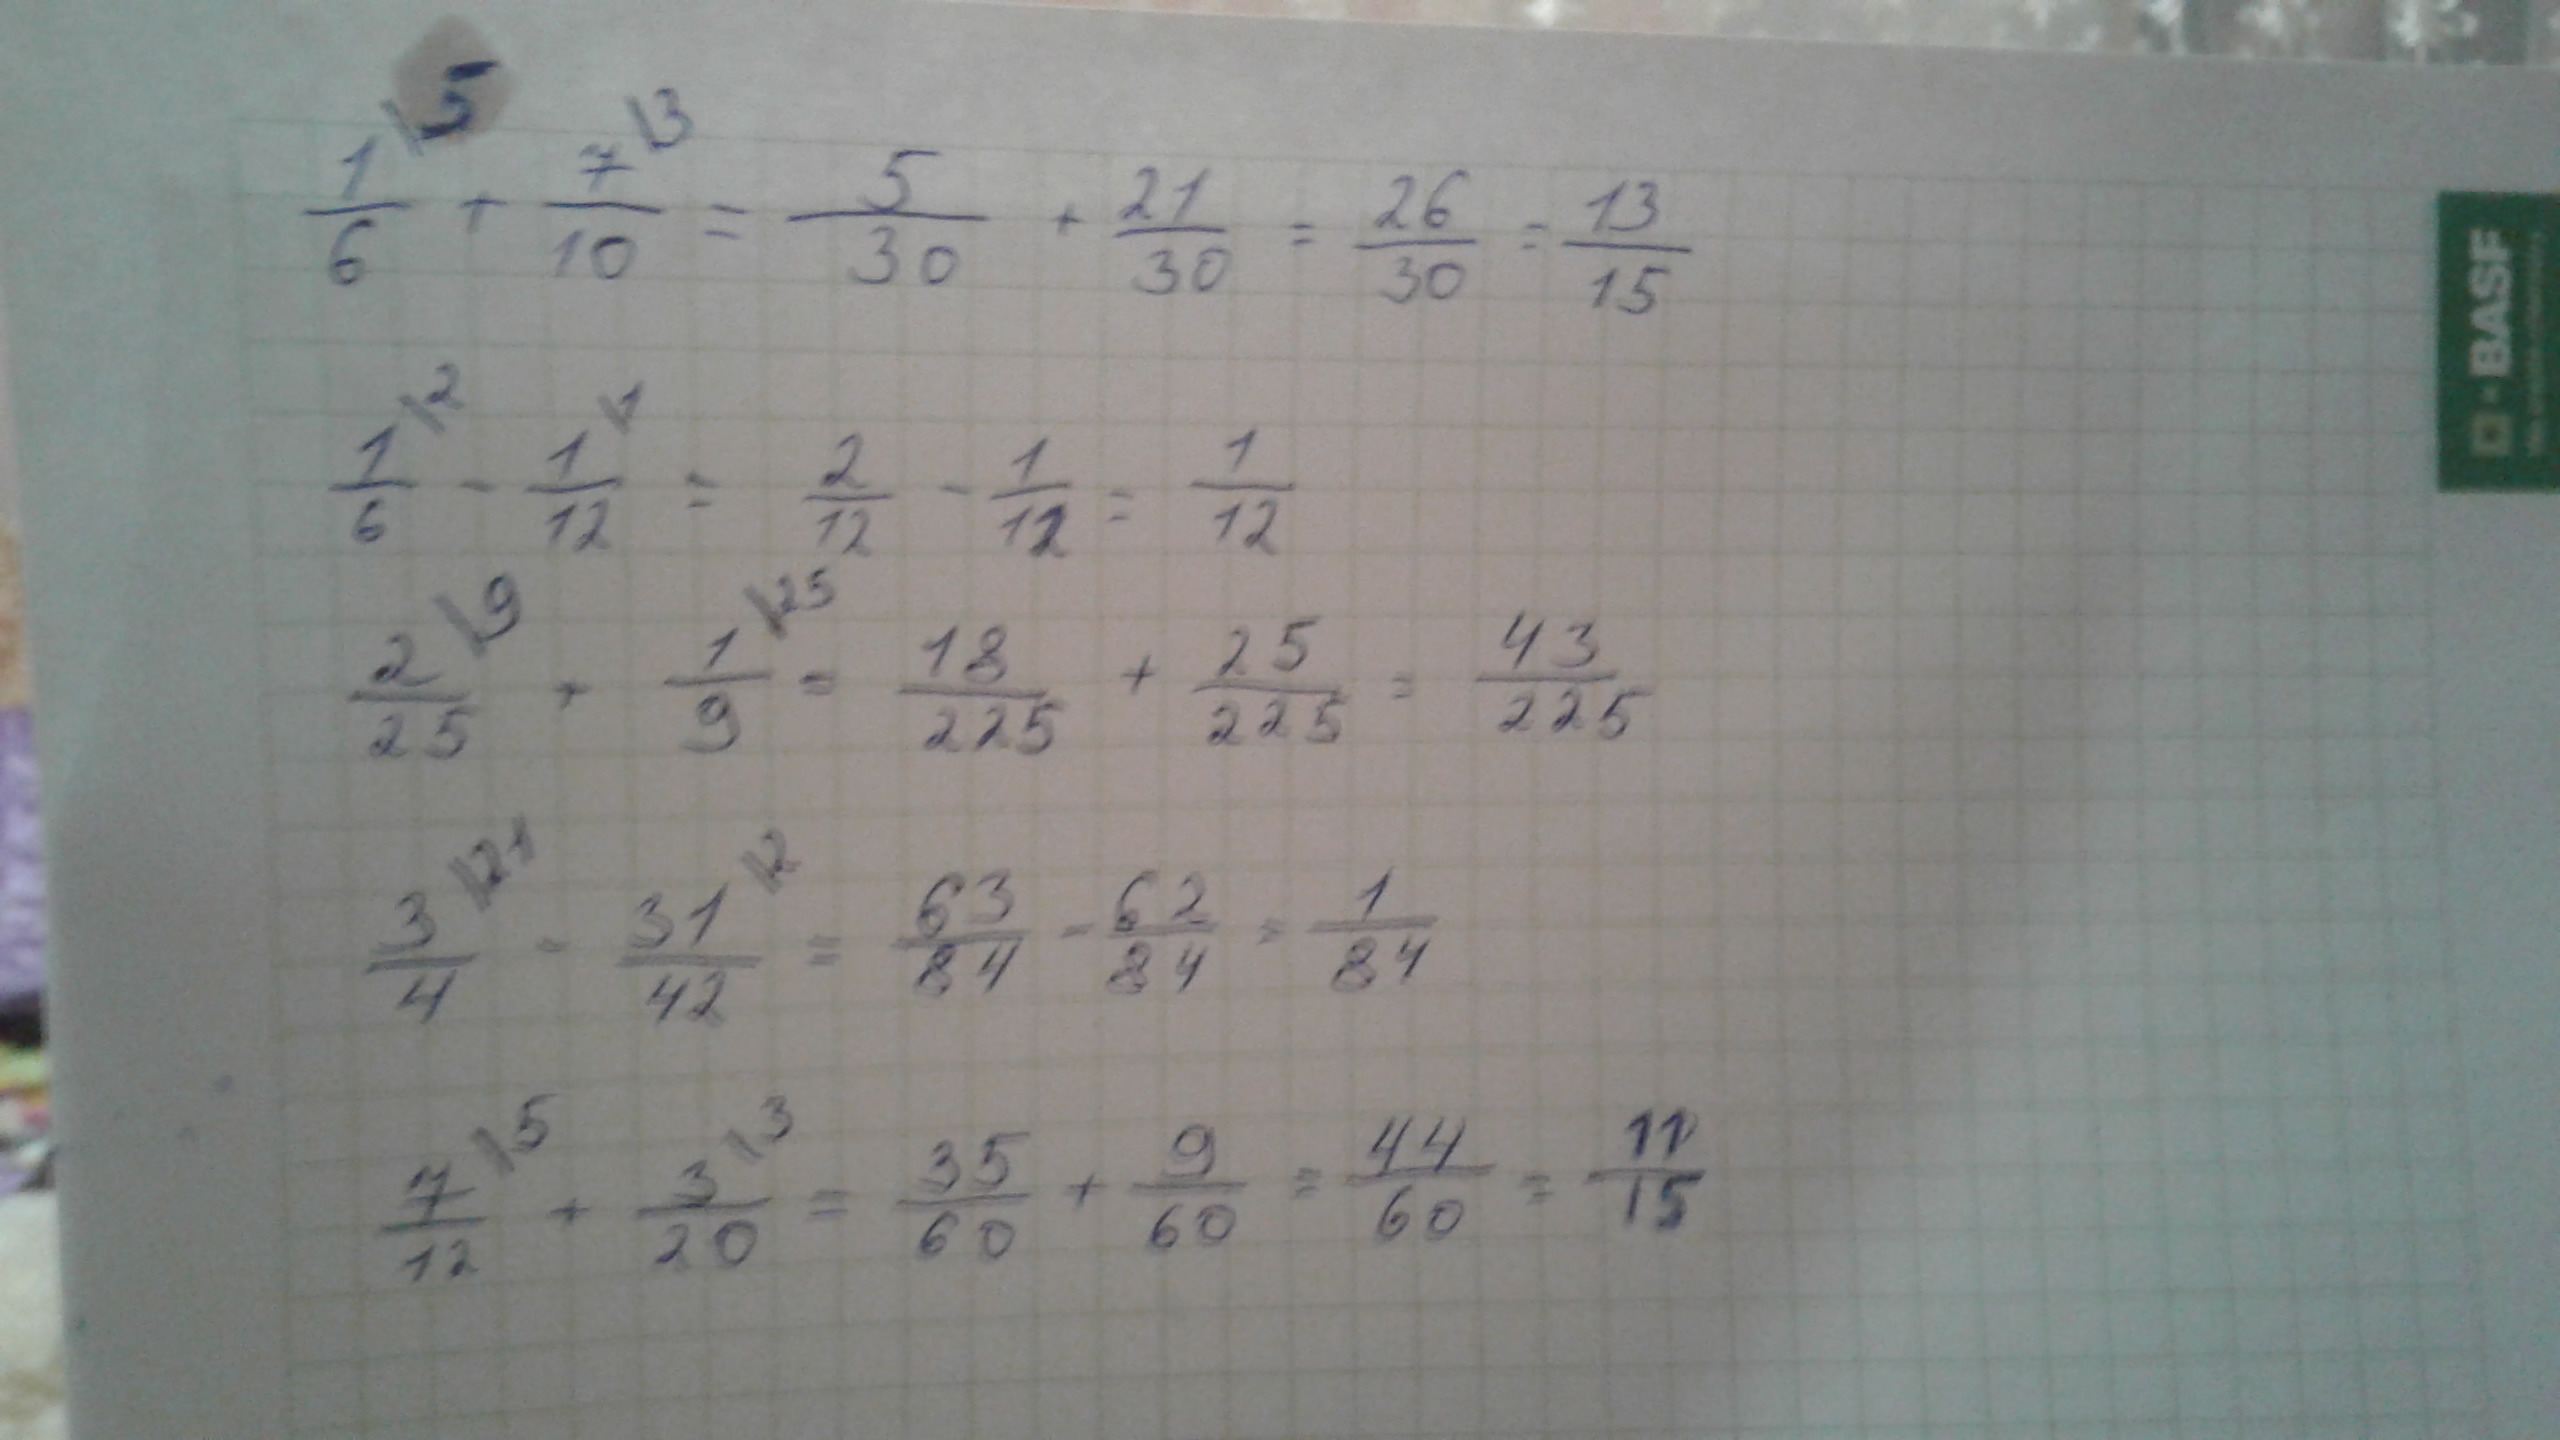 1/6 \5 + 7/10 \3 = 5/30 + 21/30 = 26/30 = 13/15
1/6 \2 - 1/12 \1 = 2/12 - 1/12 = 1/12
2/25 \9 + 1/9 \25 = 18/225 + 25/225 = 43/225
3/4 \21 - 31/42 \2 = 63/84 - 62/84 = 1/84
7/12 \5 + 3/20 \3 = 35/60 + 9/60 = 44/60 = 11/15
BASF